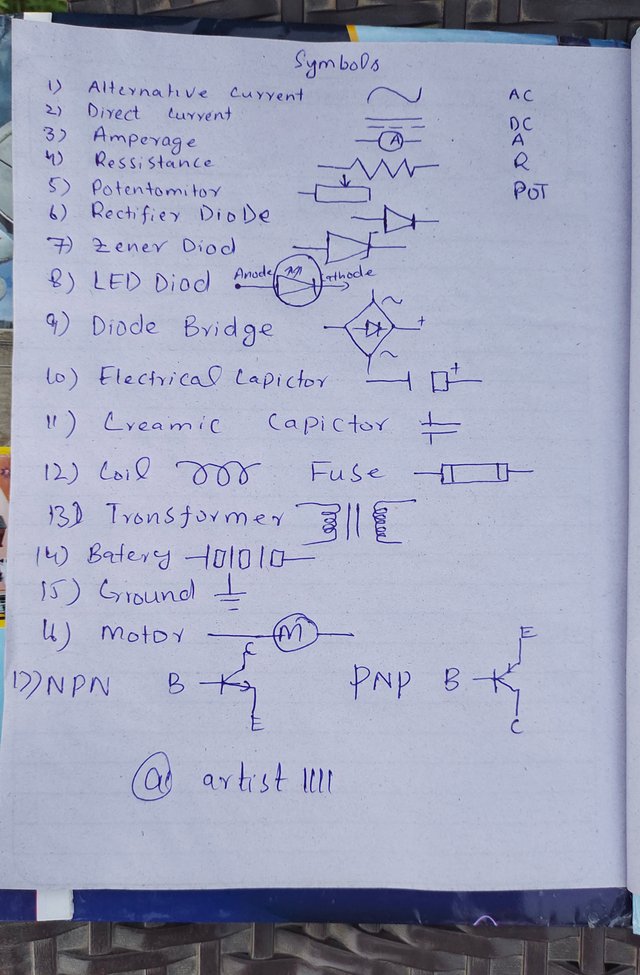 Symbols
1) Alternative Current AC
2) Direct Current DC
3) Amperage A A
4) Ressistance R
5) Potentomitor POT
6) Rectifier DioDe
7) Zener Diod
8) LED Diod Anode Cathode
9) Diode Bridge +
10) Electrical Capictor +
11) Creamic Capictor
12) Coil Fuse
13) Transformer
14) Batery
15) Ground
16) Motor M
17) NPN B C E PNP B E C
@ artist 1111